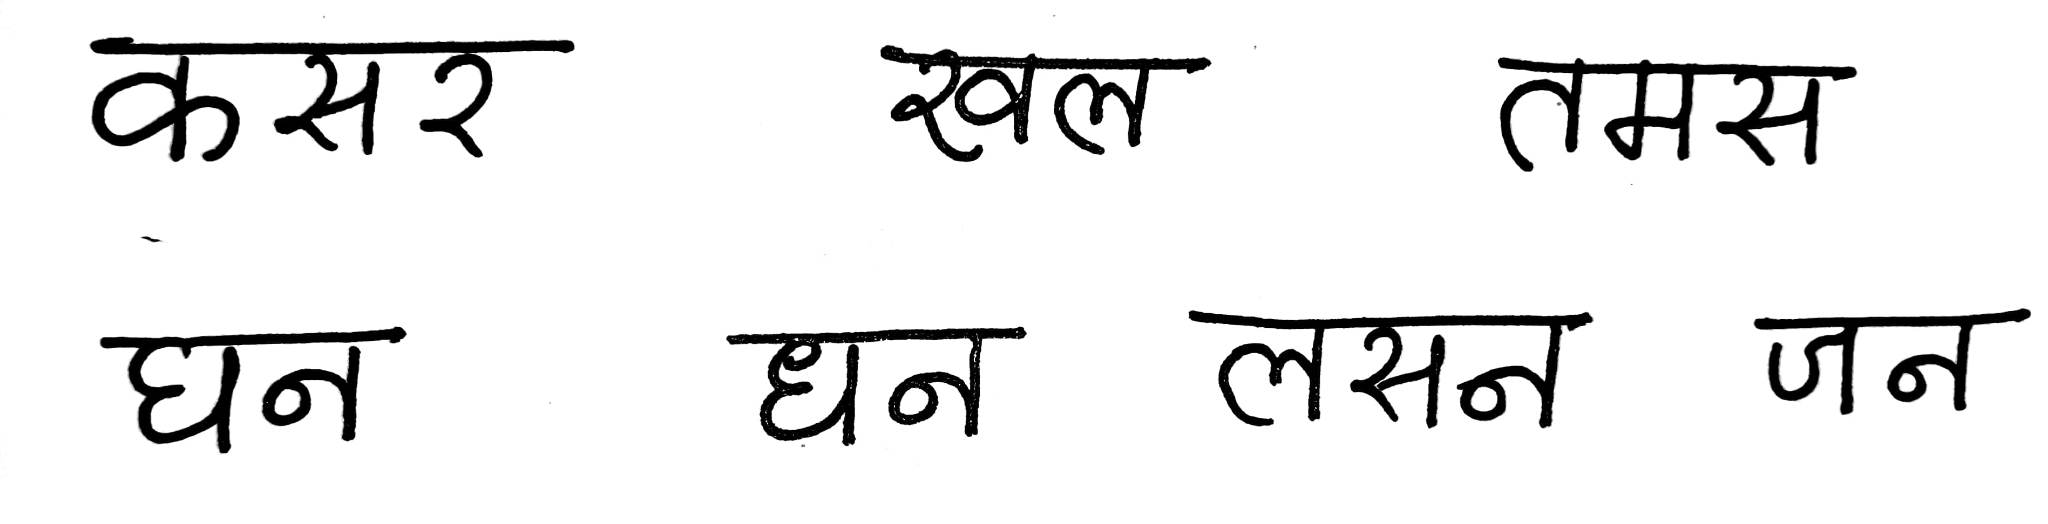 कसर खल तमस
घन धन लसन जन